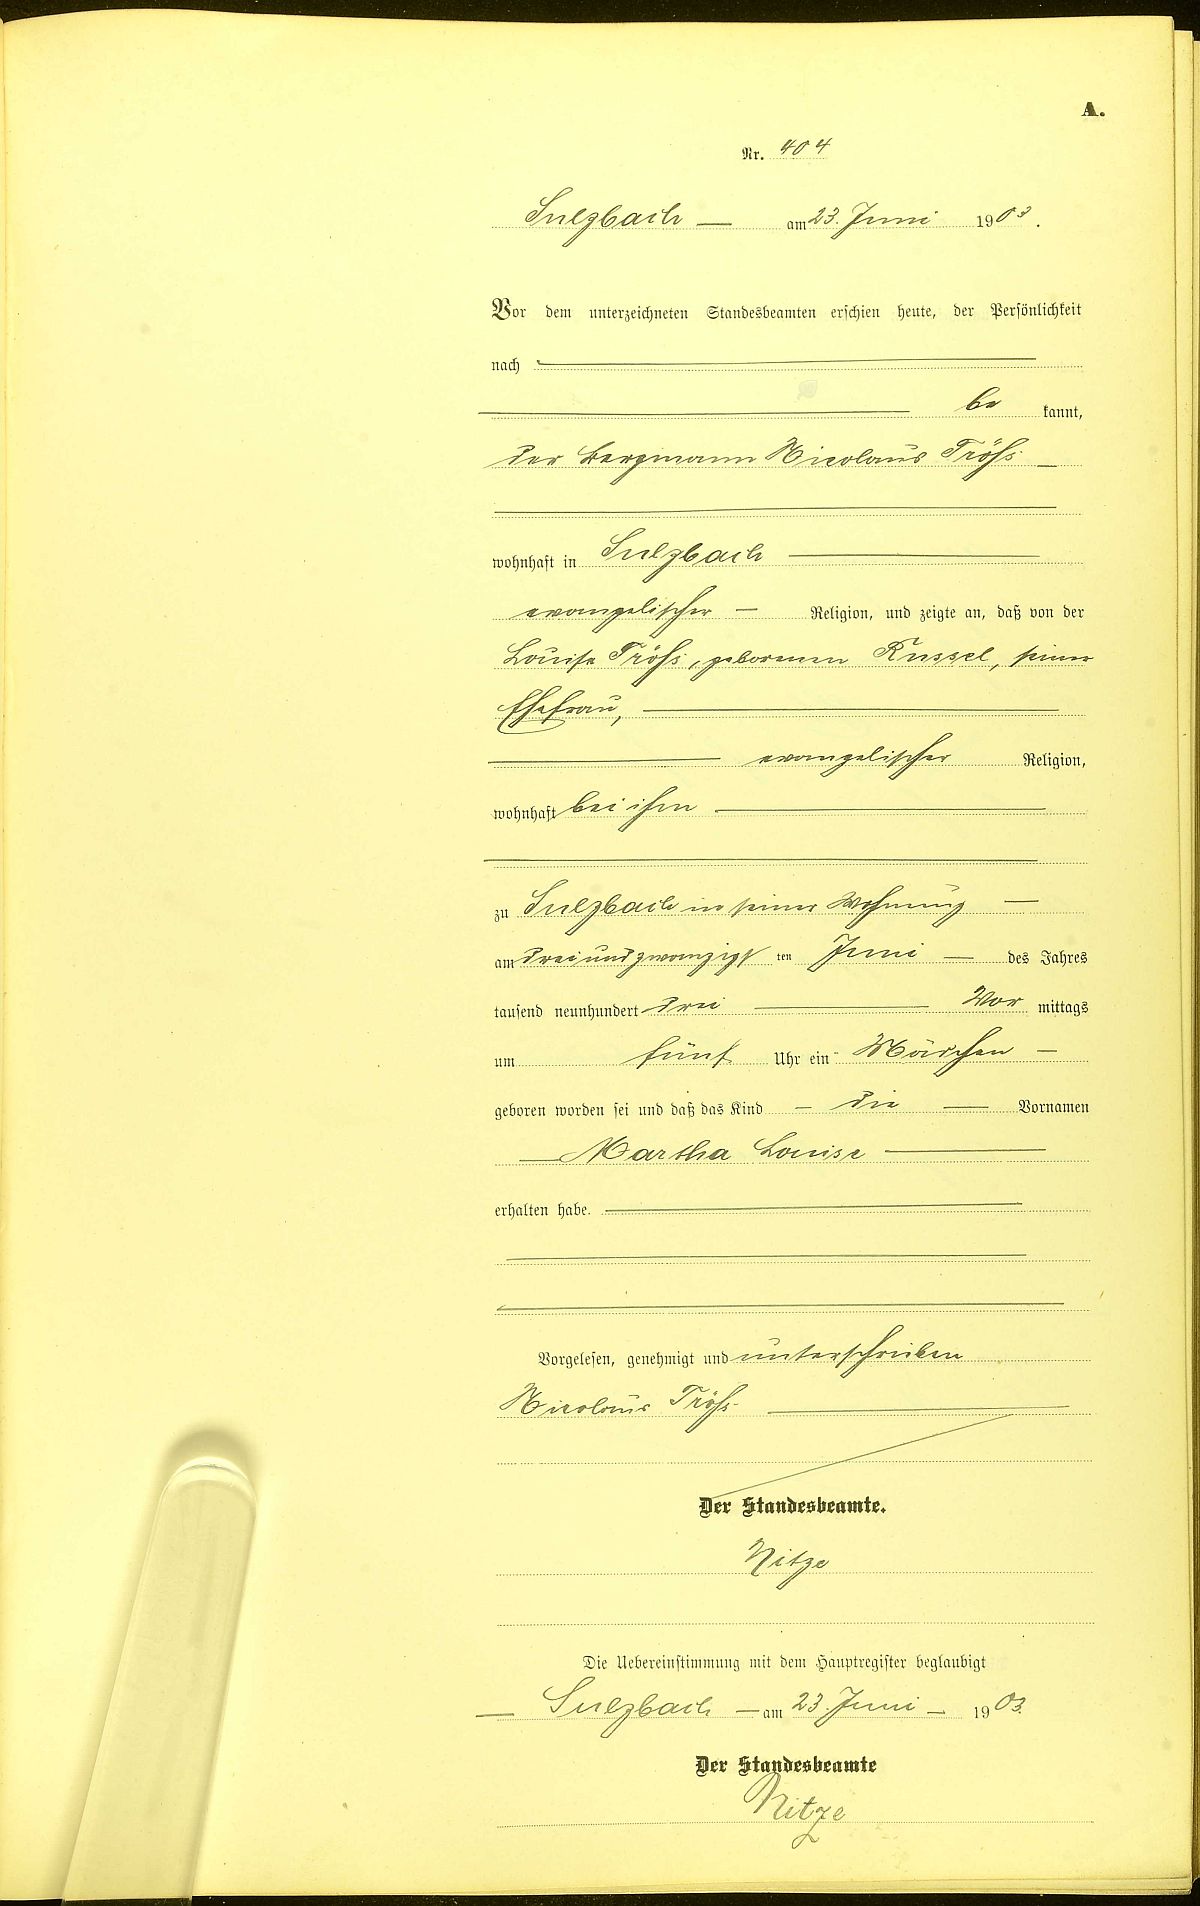 A.
Nr. 404
Sulzbach — am 23. Juni 1903.
Vor dem unterzeichneten Standesbeamten erschien heute, der Persönlichkeit
nach
be kannt,
der Bergmann Nicolaus Tröhs —
wohnhaft in Sulzbach
evangelischer — Religion, und zeigte an, daß von der
Louise Tröhs, geborenen Kussel, seiner
Ehefrau,
evangelischer Religion,
wohnhaft bei ihm
zu Sulzbach in seiner Wohnung —
am dreiundzwanzigsten Juni — des Jahres
tausend neunhundert drei Vor mittags
um fünf Uhr ein Mädchen —
geboren worden sei und daß das Kind — die — Vornamen
Martha Louise
erhalten habe.
Vorgelesen, genehmigt und unterschrieben
Nicolaus Tröhs
Der Standesbeamte.
Nitze
Die Uebereinstimmung mit dem Hauptregister beglaubigt
— Sulzbach — am 23. Juni — 1903.
Der Standesbeamte
Nitze